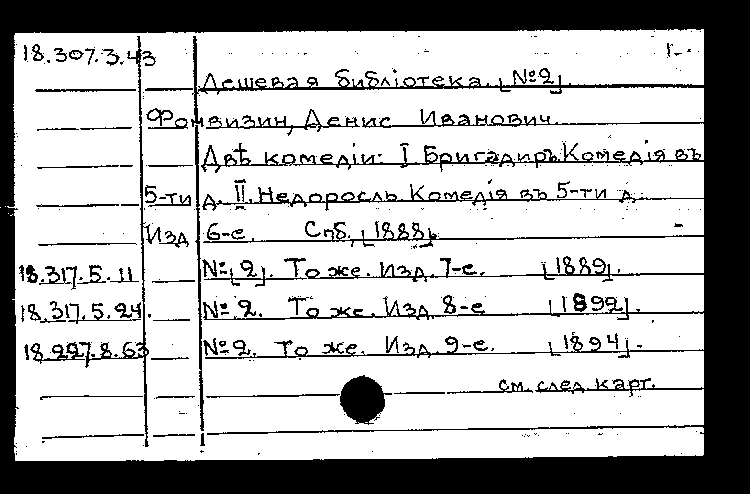 18.307.3.43 1-.
Дешевая библіотека. [№2].
Фонвизин, Денис Иванович.
Двѣ комедіи: I Бригадиръ. Комедія въ
5-ти д. II. Недоросль. Комедія въ 5-ти д.
Изд 6-е. Спб, [1888].
18.317.5.11 №[2]. То же. Изд. 7-е. [1889].
18.317.5.24. № 2. То же. Изд. 8-е [1892].
18.227.8.63 №2. То же. Изд. 9-е. [1894].
см. след. карт.